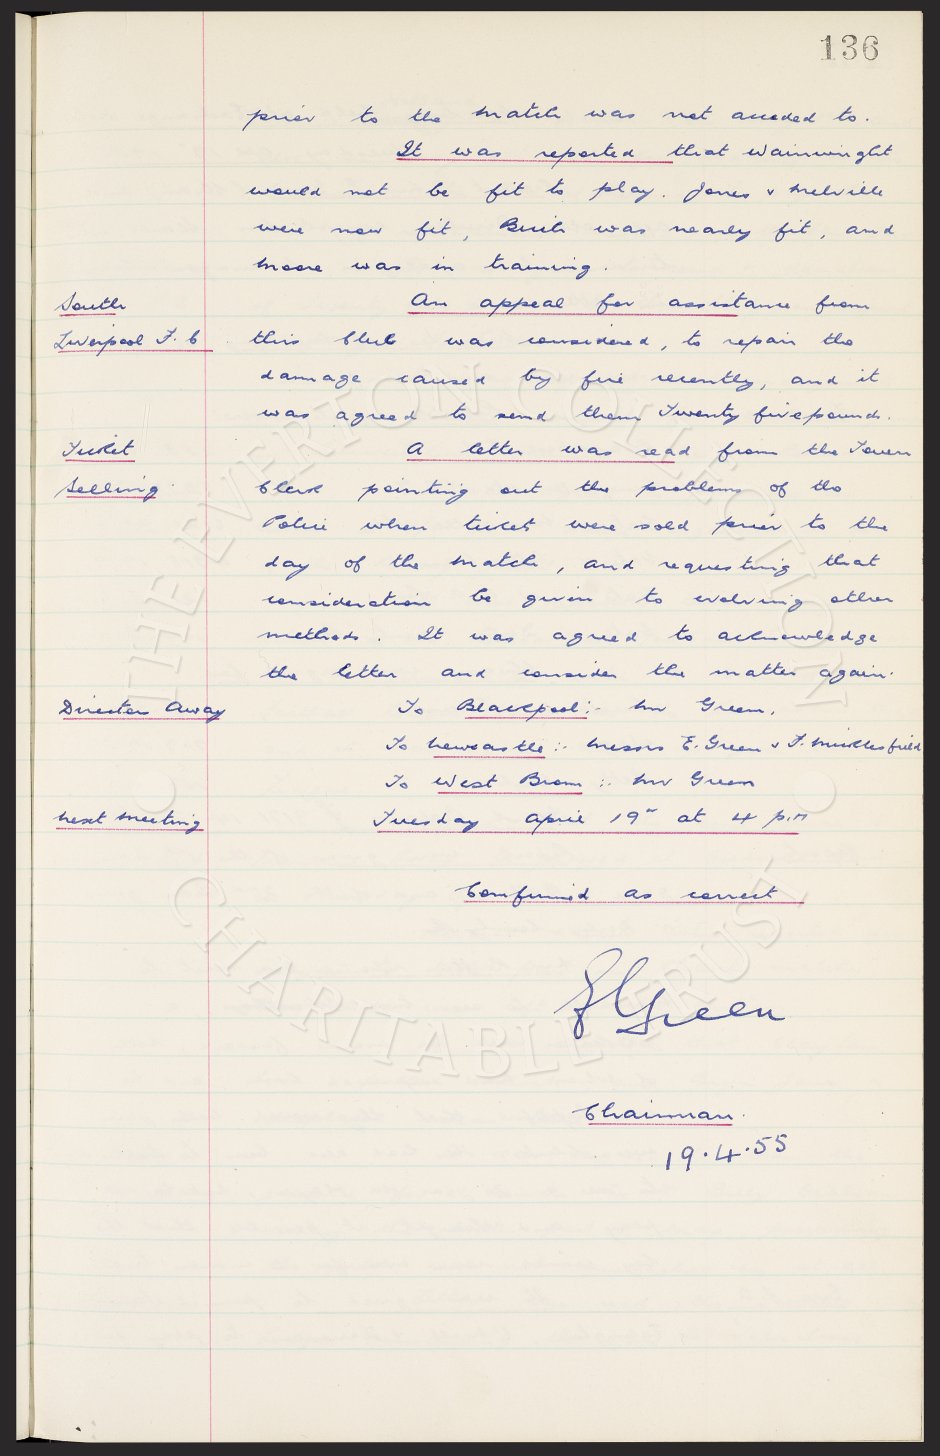 136
prior to the match was not acceded to.
It was reported that Wainwright
would not be fit to play. Jones & Melville
were now fit, Birch was nearly fit, and
Moore was in training.
South
An appeal for assistance from
Liverpool F. C
this Club was considered, to repair the
damage caused by fire recently, and it
was agreed to send them Twenty five pounds.
Ticket
A letter was read from the Town
Selling.
Clerk pointing out the problems of the
Police when tickets were sold prior to the
day of the match, and requesting that
consideration be given to evolving other
methods. It was agreed to acknowledge
the letter and consider the matter again.
Directors Away
To Blackpool:- Mr Green.
To Newcastle:- Messrs E. Green & F. Micklesfield
To West Brom:- Mr Green
Next Meeting
Tuesday April 19th at 4 p.m
Confirmed as correct
Green
Chairman.
19.4.55
THE EVERTON COLLECTION
CHARITABLE TRUST